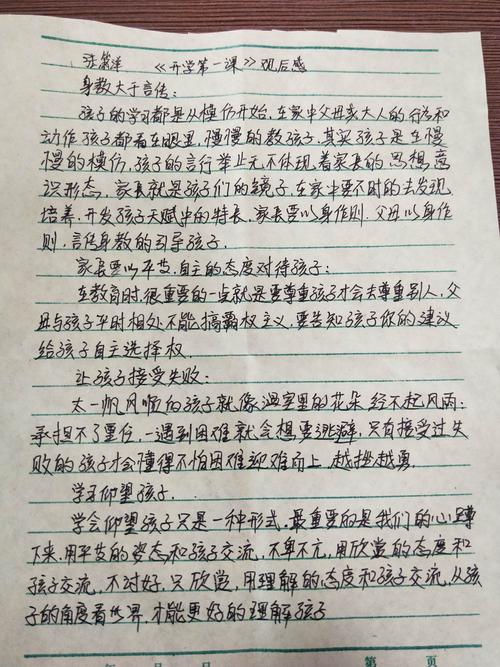 张箫洋 《开学第一课》观后感
身教大于言传：
孩子的学习都是从模仿开始，在家中父母亲大人的行为和
动作，孩子都看在眼里，慢慢的教孩子，其实孩子是在慢
慢的模仿，孩子的言行举止无不体现着家长的思想，意
识形态，家长就是孩子们的镜子，在家中要不时的去发现，
培养，开发孩子天赋中的特长，家长要以身作则，父母以身作
则，言传身教的引导孩子。
家长要以平等，自主的态度对待孩子：
在教育时，很重要的一点就是要尊重孩子才会去尊重别人，父
母与孩子平时相处不能搞霸权主义，要告知孩子你的建议
给孩子自主选择权。
让孩子接受失败：
太一帆风顺的孩子就像温室里的花朵，经不起风雨；
承担不了重任，一遇到困难就会想要逃避，只有接受过失
败的孩子才会懂得不怕困难迎难而上，越挫越勇。
学习仰望孩子．
学会仰望孩子只是一种形式，最重要的是我们的心蹲
下来，用平等的姿态和孩子交流，不卑不亢，用欣赏的态度和
孩子交流，不讨好，只欣赏，用理解的态度和孩子交流，从孩
子的角度看世界，才能更好的理解孩子
年 月 日 第 页